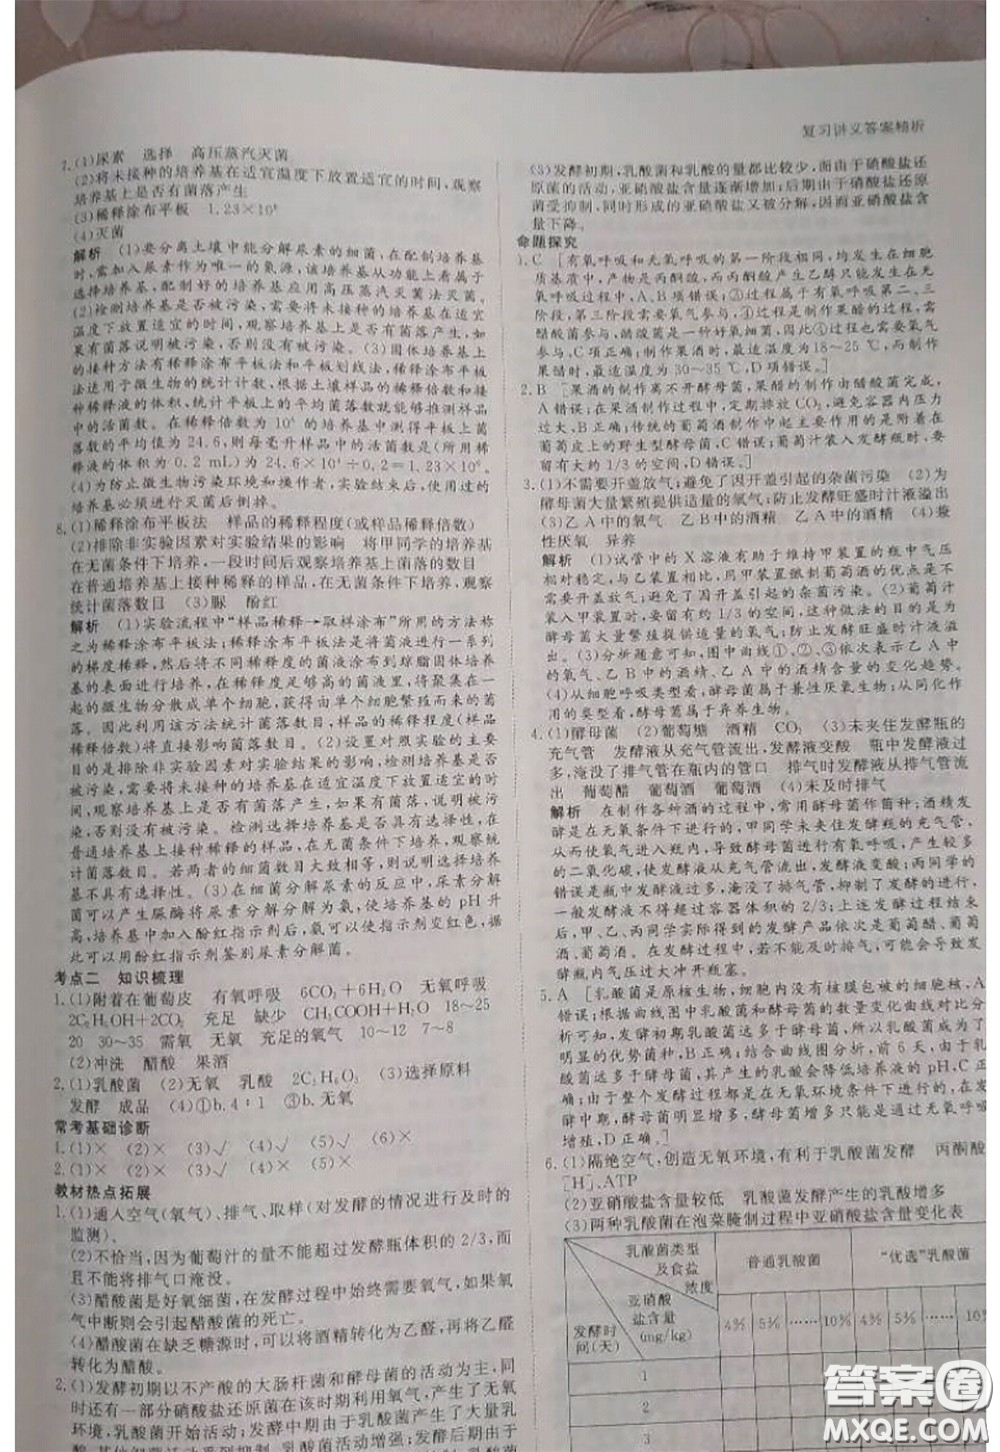 复习讲义答案精析
7.(1)尿素 选择 高压蒸汽灭菌
(2)将未接种的培养基在适宜温度下放置适宜的时间,观察
培养基上是否有菌落产生
(3)稀释涂布平板 1.23×10⁸
(4)灭菌
解析 (1)要分离土壤中能分解尿素的细菌,在配制培养基
时,需加入尿素作为唯一的氮源,该培养基从功能上看属于
选择培养基,配制好的培养基应用高压蒸汽灭菌法灭菌。
(2)检测培养基是否被污染,需要将未接种的培养基在适宜
温度下放置适宜的时间,观察培养基上是否有菌落产生,如
果有菌落说明被污染,否则没有被污染。(3)固体培养基上
接种方法有稀释涂布平板法和平板划线法,稀释涂布平板
法适用于微生物的统计计数,根据土壤样品的稀释倍数和接
种稀释液的体积,统计平板上的平均菌落数就能推测样品
中的活菌数。在稀释倍数为10⁶的培养基中测得平板上菌
落数的平均值为24.6,则每毫升样品中的活菌数(所用稀
释液的体积为0.2 mL)为24.6×10⁶÷0.2=1.23×10⁸。
(4)为防止微生物污染环境和操作者,实验结束后,使用过的
培养基必须进行灭菌后倒掉。
8.(1)稀释涂布平板法 样品的稀释程度(或样品稀释倍数)
(2)排除非实验因素对实验结果的影响 将甲同学的培养基
在无菌条件下培养,一段时间后观察培养基上菌落的数目
在普通培养基上接种稀释的样品,在无菌条件下培养,观察
统计菌落数目 (3)脲 酚红
解析 (1)实验流程中“样品稀释→取样涂布”所用的方法称
之为稀释涂布平板法;稀释涂布平板法是将菌液进行一系列
的梯度稀释,然后将不同稀释度的菌液涂布到琼脂固体培养
基的表面进行培养,在稀释度足够高的菌液里,将聚集在一
起的微生物分散成单个细胞,获得由单个细胞繁殖而来的菌
落。因此利用该方法统计菌落数目,样品的稀释程度(样品
稀释倍数)将直接影响菌落数目。(2)设置对照实验的主要目
的是排除非实验因素对实验结果的影响,检测培养基是否被
污染,需要将未接种的培养基在适宜温度下放置适宜的时
间,观察培养基上是否有菌落产生,如果有菌落,说明被污
染,否则没有被污染。检测选择培养基是否具有选择性,在
普通培养基上接种稀释的样品,在无菌条件下培养,观察统
计菌落数目。若两者的细菌数目大致相等,则说明该培养基
不具有选择性。(3)在细菌分解尿素的反应中,尿素分解
菌可以产生脲酶将尿素分解分解为氨,使培养基的 pH 升
高,培养基中加入酚红指示剂后,氨使指示剂变红色,因此
可以用酚红指示剂鉴别尿素分解菌。
考点二 知识梳理
1.(1)附着在葡萄皮 有氧呼吸 6CO₂+6H₂O 无氧呼吸
2C₂H₅OH+2CO₂ 充足 缺少 CH₃COOH+H₂O 18~25
20 30~35 需氧 无氧 充足的氧气 10~12 7~8
(2)冲洗 醋酸 果酒
2.(1)乳酸菌 (2)无氧 乳酸 2C₃H₆O₃ (3)选择原料
发酵 成品 (4)①b.4∶1 ③b.无氧
常考基础诊断
1.(1)× (2)× (3)√ (4)√ (5)√ (6)×
2.(1)× (2)× (3)√ (4)× (5)×
教材热点拓展
1.(1)通入空气(氧气)、排气、取样(对发酵的情况进行及时的
监测)。
(2)不恰当,因为葡萄汁的量不能超过发酵瓶体积的2/3,而
且不能将排气口淹没。
(3)醋酸菌是好氧细菌,在发酵过程中始终需要氧气,如果氧
气中断则会引起醋酸菌的死亡。
(4)醋酸菌在缺乏糖源时,可以将酒精转化为乙醛,再将乙醛
转化为醋酸。
2.(1)发酵初期以不产酸的大肠杆菌和酵母菌的活动为主,同
时还有一部分硝酸盐还原菌在该时期利用氧气,产生了无氧
环境,乳酸菌开始活动;发酵中期由于乳酸菌产生了大量乳
(3)发酵初期,乳酸菌和乳酸的量都比较少,而由于硝酸盐还
原菌的活动,亚硝酸盐含量逐渐增加;后期由于硝酸盐还原
菌受抑制,同时形成的亚硝酸盐又被分解,因而亚硝酸盐含
量下降。
命题探究
1.C [有氧呼吸和无氧呼吸的第一阶段相同,均发生在细胞
质基质中,产物是丙酮酸,而丙酮酸产生乙醇只能发生在无
氧呼吸过程中,A、B项错误;③过程是有氧呼吸第二、三
阶段,第三阶段需要氧气参与,④过程是制作果醋的过程,需
醋酸菌参与,醋酸菌是一种好氧细菌,因此④过程也需要氧气
参与,C项正确;制作果酒时,最适温度为18~25 ℃,而制作
果醋时,最适温度为30~35 ℃,D项错误。]
2.B [果酒的制作离不开酵母菌,果醋的制作由醋酸菌完成,
A错误;在果酒制作过程中,定期排放CO₂,避免容器内压力
过大,B正确;传统的葡萄酒制作中起主要作用的是附着在
葡萄皮上的野生型酵母菌,C错误;葡萄汁装入发酵瓶时,要
留有大约1/3的空间,D错误。]
3.(1)不需要开盖放气;避免了因开盖引起的杂菌污染 (2)为
酵母菌大量繁殖提供适量的氧气;防止发酵旺盛时汁液溢出
(3)乙A中的氧气 乙B中的酒精 乙A中的酒精 (4)兼
性厌氧 异养
解析 (1)试管中的X溶液有助于维持甲装置的瓶中气压
相对稳定,与乙装置相比,用甲装置强制葡萄酒的优点是不
需要放气;避免了因开盖引起的杂菌污染。(2)将葡萄汁装
入甲装置时,要留约1/3的空间,这种做法的目的是为
酵母菌大量繁殖提供适量的氧气;防止发酵旺盛时汁液溢
出。(3)分析题意可知,图中曲线①、②、③依次表示乙A中
的氧气、乙B中的酒精、乙A中的酒精含量的变化趋势。
(4)从细胞呼吸类型看,酵母菌属于兼性厌氧生物;从同化作
用的类型看,酵母菌属于异养生物。
4.(1)酵母菌 (2)葡萄糖 酒精 CO₂ (3)未夹住发酵瓶的
充气管 发酵液从充气管流出,发酵液变酸 瓶中发酵液过
多,淹没了排气管在瓶内的管口 排气时发酵液从排气管流
出 葡萄醋 葡萄酒 葡萄酒 (4)未及时排气
解析 在制作各种酒的过程中,常用酵母菌作菌种;酒精发
酵是在无氧条件下进行的,甲同学未夹住发酵瓶的充气管,
空气进入瓶内,导致酵母菌进行有氧呼吸,产生较多
的二氧化碳,使发酵液从充气管流出,发酵液变酸;丙同学的
错误是发酵液过多,淹没了排气管,抑制了发酵的进行,
一般发酵液不得超过容器体积的2/3;上述发酵过程
中,甲、乙、丙同学实际得到的发酵产品依次是葡萄醋、葡萄
酒、葡萄酒。在发酵过程中,若不能及时排气,可能会使
瓶中气压过大冲开瓶塞。
5.A [乳酸菌是原核生物,细胞内没有核膜包被的细胞核,A
错误;根据图中乳酸菌和酵母菌的数量变化曲线对比分
析可知,发酵初期乳酸菌远多于酵母菌,所以乳酸菌成为了
明显的优势菌种,B正确;结合曲线图分析,前6天,由于乳
酸菌远多于酵母菌,其产生的乳酸会降低培养液的pH,C正
确;由于整个发酵过程都是在无氧环境条件下进行的,在发
酵中期,酵母菌明显增多,此过程酵母菌只能进行无氧呼吸
增殖,D正确。]
6.(1)隔绝空气,创造无氧环境,有利于乳酸菌发酵 丙酮酸、
[H]、ATP
(2)亚硝酸盐含量较低 乳酸菌发酵产生的乳酸增多
(3)两种乳酸菌在泡菜腌制过程中亚硝酸盐含量变化表
乳酸菌类型及食盐浓度 普通乳酸菌 “优选”乳酸菌
亚硝酸盐含量(mg/kg) 4% 5% …… 10% 4% 5% …… 10%
发酵时间(天)
1
2
3
答案圈
MXQE.COM